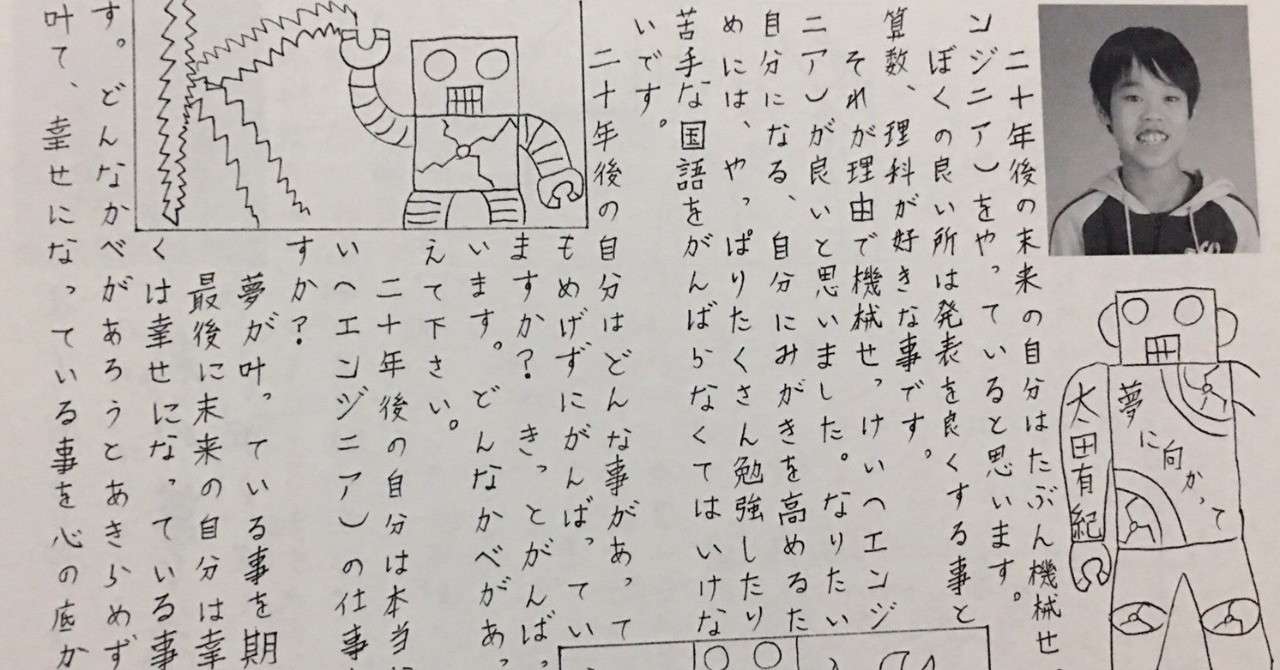 夢に向かって
太田有紀
二十年後の未来の自分はたぶん機械せっ
ンジニア）をやっていると思います。
ぼくの良い所は発表を良くする事と
算数、理科が好きな事です。
それが理由で機械せっけい（エンジ
ニア）が良いと思いました。なりたい
自分になる、自分にみがきを高めるた
めには、やっぱりたくさん勉強したり
苦手な国語をがんばらなくてはいけな
いです。
二十年後の自分はどんな事があって
もめげずにがんばってい
ますか？きっとがんばっ
います。どんなかべがあっ
えて下さい。
二十年後の自分は本当
い（エンジニア）の仕事
すか？
夢が叶っている事を期
最後に未来の自分は幸
くは幸せになっている事
す。どんなかべがあろうとあきらめず
叶て、幸せになっている事を心の底か